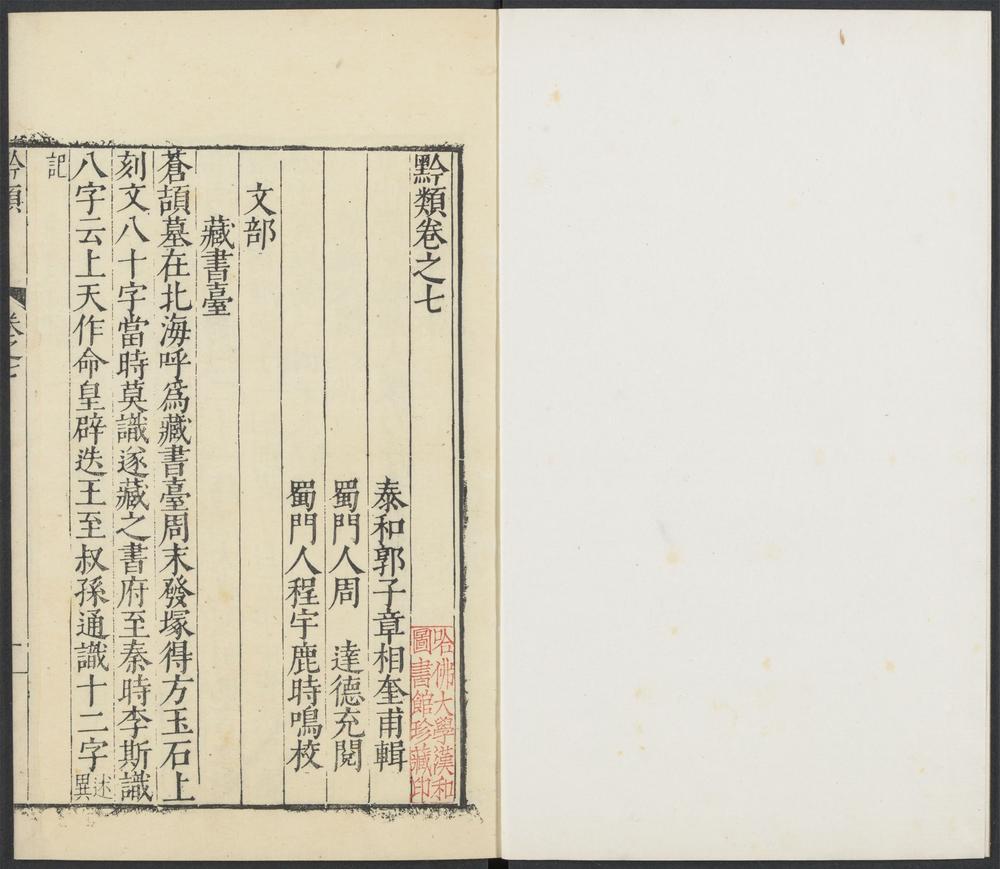 黔類卷之七
泰和郭子章相奎甫輯
蜀門人周　達德充閱
蜀門人程宇鹿時鳴校
文部
藏書臺
蒼頡墓在北海呼爲藏書臺周末發塚得方玉石上
刻文八十字當時莫識遂藏之書府至秦時李斯識
八字云上天作命皇辟迭王至叔孫通識十二字述異
記
黔類　卷之七
哈佛大學漢和
圖書館珍藏印